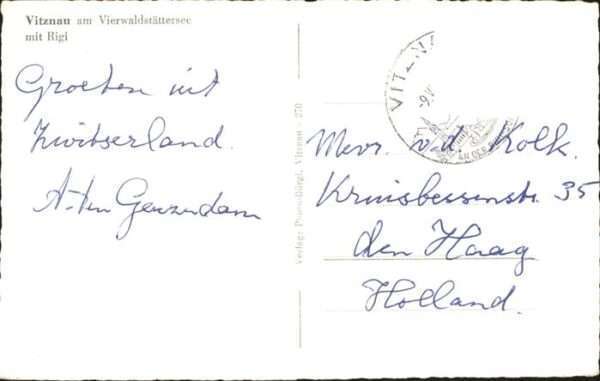 Vitznau am Vierwaldstättersee
mit Rigi
Groeten uit
Zwitserland.
Verlag: Photo-Bürgi, Vitznau - 270
VITZNA
Mevr. v.d. Kolk.
Kruisbessenstr. 35
den Haag
Holland.